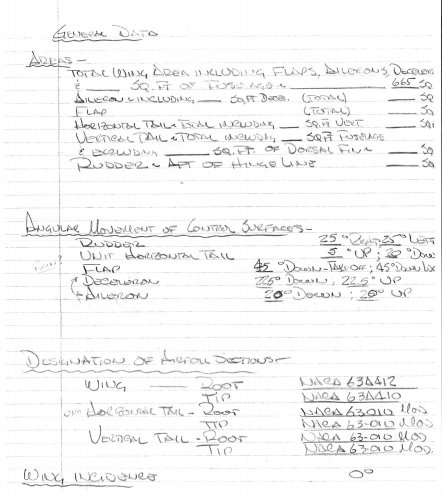 GENERAL DATA
AREAS -
TOTAL WING AREA INCLUDING FLAPS, AILERONS,
& ___ SQ. FT OF FUSELAGE - 665 SQ
AILERON INCLUDING ___ SQ FT DECEL. (TOTAL) SQ
FLAP (TOTAL) SQ
HORIZONTAL TAIL - TOTAL INCLUDING ___ SQ. FT VERT. SQ
VERTICAL TAIL - TOTAL INCLUDING ___ SQ FT FUSELAGE
& EXCLUDING ___ SQ. FT. OF DORSAL FIN - SQ
RUDDER - AFT OF HINGE LINE SQ
ANGULAR MOVEMENT OF CONTROL SURFACES -
RUDDER 25° RIGHT; 25° LEFT
UNIT HORIZONTAL TAIL 5° UP; 20° DOWN
FLAP 45° DOWN - TAKE OFF; 45° DOWN
DECELERON 22.5° DOWN; 22.5° UP
AILERON 20° DOWN; 20° UP
DESIGNATION OF AIRFOIL SECTIONS -
WING ROOT NACA 63A412
TIP NACA 63A410
HORIZONTAL TAIL - ROOT NACA 63-010 MOD
TIP NACA 63-010 MOD.
VERTICAL TAIL - ROOT NACA 63-010 MOD
TIP NACA 63-010 MOD.
WING INCIDENCE 0°